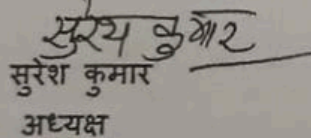 सुरेश कुमार
सुरेश कुमार
अध्यक्ष